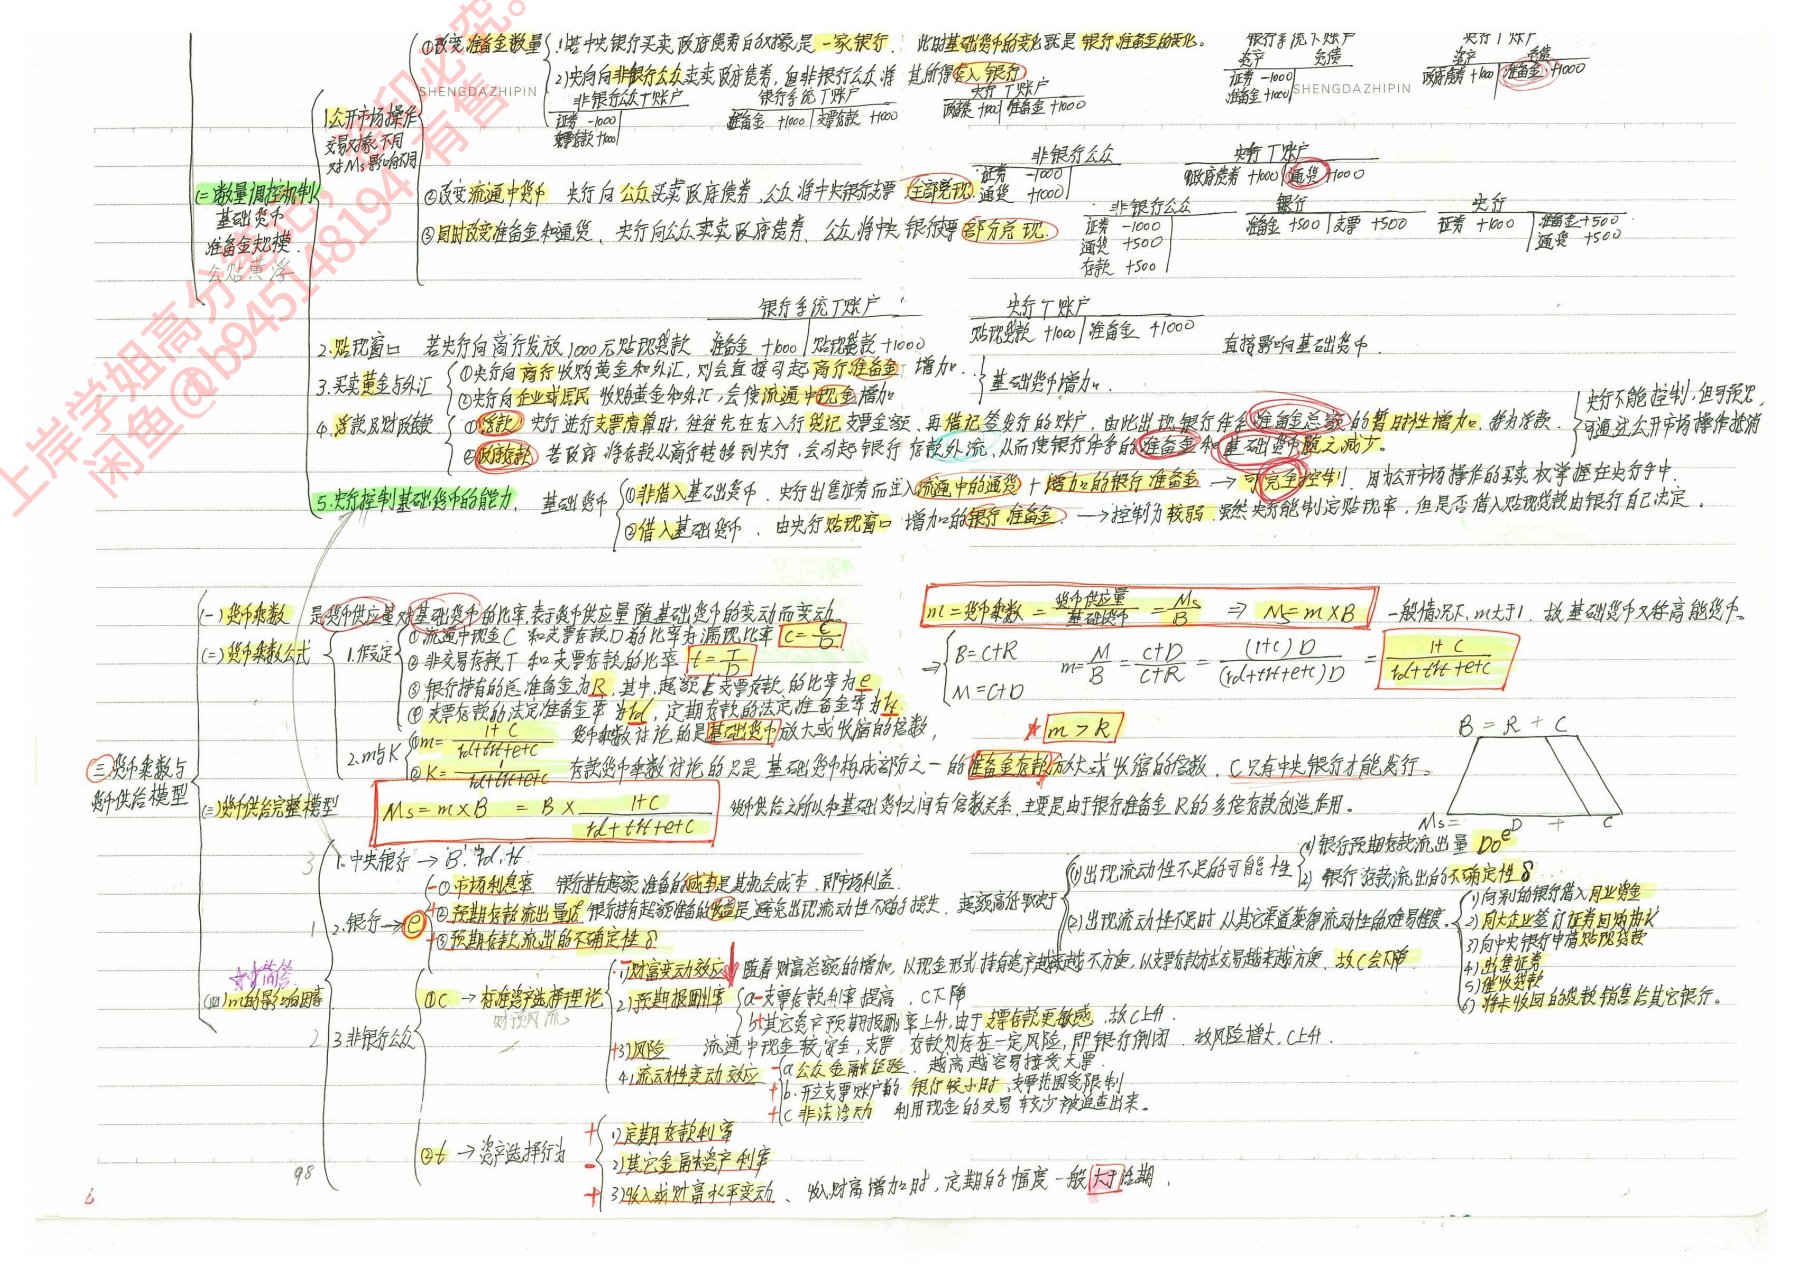 (二)数量调控机制
基础货币
准备金规模
公贴黄浮
1.公开市场操作
交易对象不同
对Ms影响不同
①改变准备金数量
1)若中央银行买卖政府债券的对象是一家银行,此时基础货币的变化就是银行准备金的变化。
银行系统T账户
资产 负债
证券 -1000
准备金 +1000
央行T账户
资产 负债
政府债券 +1000 准备金 +1000
2)央行向非银行公众买卖政府债券,但非银行公众将其所得存入银行
SHENGDAZHIPIN
SHENGDAZHIPIN
非银行公众T账户
证券 -1000
支票存款 +1000
银行系统T账户
准备金 +1000 支票存款 +1000
央行T账户
政府债券 +1000 准备金 +1000
②改变流通中货币 央行向公众买卖政府债券,公众将中央银行支票全部兑现.
非银行公众
证券 -1000
通货 +1000
央行T账户
政府债券 +1000 通货 +1000
③同时改变准备金和通货、央行向公众买卖政府债券、公众将中央银行支票部分兑现.
非银行公众
证券 -1000
通货 +500
存款 +500
银行
准备金 +500 支票 +500
央行
证券 +1000 准备金 +500
通货 +500
2.贴现窗口 若央行向商行发放1000元贴现贷款
银行系统T账户
准备金 +1000 贴现贷款 +1000
央行T账户
贴现贷款 +1000 准备金 +1000
直接影响基础货币.
3.买卖黄金与外汇
①央行向商行收购黄金和外汇,则会直接引起商行准备金增加.
②央行向企业或居民收购黄金和外汇,会使流通中现金增加
基础货币增加.
4.浮款及财政存款
①浮款) 央行进行支票清算时,往往先在存入行贷记支票金额、再借记签发行的账户,由此出现银行体系准备金总额的暂时性增加,称为浮款.
②政府存款 若政府将存款从商行转移到央行,会引起银行存款外流,从而使银行体系的准备金和基础货币随之减少.
央行不能控制,但可预见,
可通过公开市场操作抵消
5.央行控制基础货币的能力.
基础货币
①非借入基础货币.央行出售证券而注入流通中的通货+增加的银行准备金 → 可完全控制.因为公开市场操作的买卖权掌握在央行手中.
②借入基础货币、由央行贴现窗口增加的银行准备金. →控制力较弱.虽然央行能制定贴现率,但是否借入贴现贷款由银行自己决定。
三.货币乘数与
货币供给模型
(一)货币乘数 是货币供应量对基础货币的比率,表示货币供应量随基础货币的变动而变动.
m=货币乘数=货币供应量/基础货币=Ms/B ⇒ Ms=m×B
一般情况下,m大于1.故基础货币又称高能货币。
(二)货币乘数公式
1.假定
①流通中现金C和支票存款D的比率为漏现比率 c=C/D
②非交易存款T和支票存款的比率 t=T/D
③银行持有的总准备金为R,其中,超额占支票存款的比率为e
④支票存款的法定准备金率为rd,定期存款的法定准备金率为rt
⇒
B=C+R
M=C+D
m=M/B=(C+D)/(C+R)=(1+c)D/(rd+t·rt+e+c)D=(1+c)/(rd+t·rt+e+c)
2.m与K
①m=(1+c)/(rd+t·rt+e+c) 货币乘数讨论的是基础货币放大或收缩的倍数,
②K=1/(rd+t·rt+e+c) 存款货币乘数讨论的只是基础货币构成部分之一的准备金存款放大或收缩的倍数.C只有中央银行才能发行。
m>K
B=R+C
Ms= D + C
(三)货币供给完整模型 Ms=m×B=B×(1+c)/(rd+t·rt+e+c)
货币供给之所以和基础货币之间有倍数关系,主要是由于银行准备金R的多倍存款创造作用。
(四)m的影响因素
简答
3
1.中央银行→B.rd,rt.
1
2.银行→e
-①市场利息率 银行持有超额准备的成本是其机会成本,即市场利益.
+②预期存款流出量De 银行持有超额准备的收益是避免出现流动性不足的损失.超额高低取决于
+③预期存款流出的不确定性δ
(1)出现流动性不足的可能性
1)银行预期存款流出量 De
2)银行存款流出的不确定性δ
(2)出现流动性不足时从其它渠道获得流动性的难易程度。
1)向别的银行借入同业资金
2)同大企业签订证券回购协议
3)向中央银行申请贴现贷款
4)出售证券
5)催收贷款
6)将未收回的贷款销售给其它银行。
2
3.非银行公众
①C→标准资产选择理论
财预风流
-1)财富变动效应 随着财富总额的增加,以现金形式持有资产越来越不方便,以支票存款方式交易越来越方便.故C会下降
2)预期报酬率
a-支票存款利率提高,C下降
b+其它资产预期报酬率上升,由于支票存款更敏感,故C上升.
+3)风险 流通中现金较安全,支票存款则存在一定风险,即银行倒闭.故风险增大,C上升.
4)流动性变动效应
-a公众金融经验.越高越容易接受支票.
+b.开立支票账户的银行较小时,支票范围受限制
+c非法活动 利用现金的交易较少被追查出来。
②t→资产选择行为
+1)定期存款利率
-2)其它金融资产利率
+3)收入或财富水平变动、收入财富增加时,定期的幅度一般大于活期.
98
b
上岸学姐高分
闲鱼@b945148194 有售